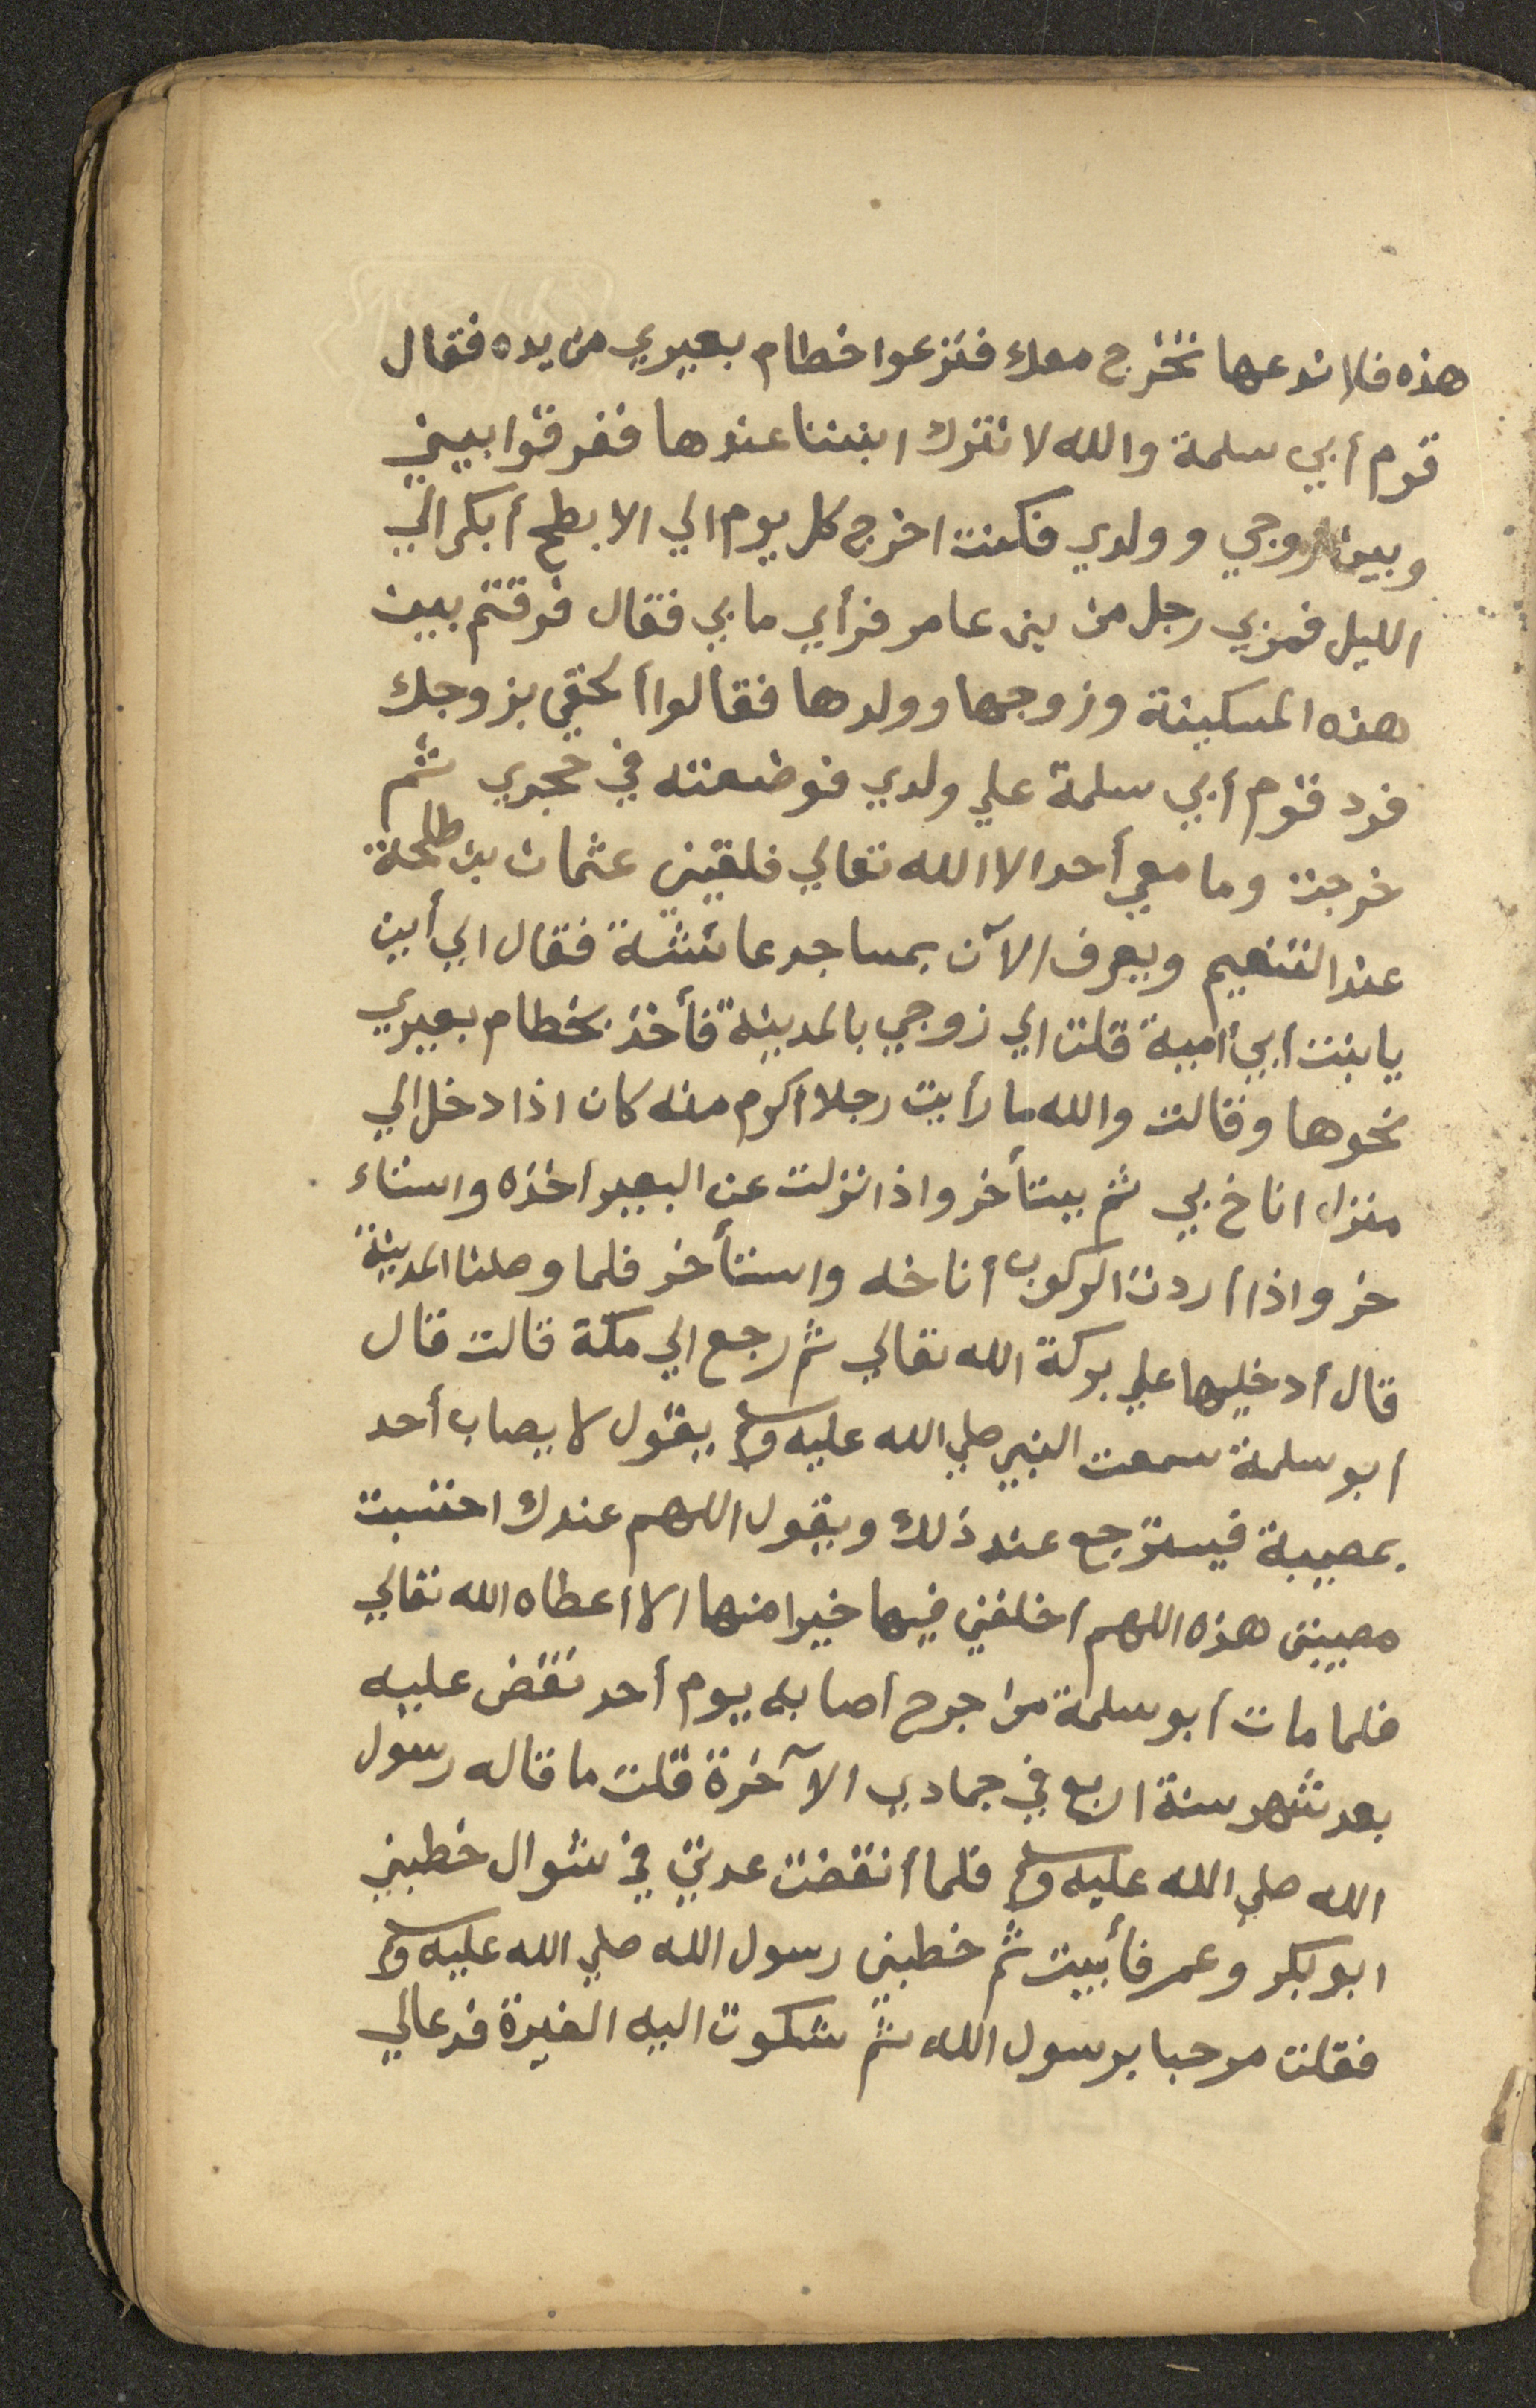 هذه فلا ندعها تخرج معك فنزعوا خطام بعيري من يده فقال
قوم أبي سلمة والله لا نترك ابننا عندها ففرقوا بيني
وبين زوجي وولدي فكنت اخرج كل يوم الي الابطح أبكر الي
الليل فمربي رجل من بني عامر فرأي مابي فقال فرقتم بين
هذه المسكينة وزوجها وولدها فقالوا ألحقي بزوجك
فرد قوم أبي سلمة علي ولدي فوضعته في حجري ثم
خرجت وما معي أحد الا الله تعالي فلقيني عثمان بن طلحة
عند التنعيم ويعرف الآن بمساجد عائشة فقال الي أين
يا بنت أبي أمية قلت الي زوجي بالمدينة فأخذ بخطام بعيري
نحوها وقالت والله ما رأيت رجلا أكرم منه كان اذا دخل الي
منزل اناخ بي ثم يستأخر واذا نزلت عن البعير اخذه واستاء
خر واذا أردت الركوب أناخه واستأخر فلما وصلنا المدينة
قال أدخليها علي بركة الله تعالي ثم رجع الي مكة قالت قال
ابو سلمة سمعت النبي صلي الله عليه وسلم يقول لا يصاب أحد
بمصيبة فيسترجع عند ذلك ويقول اللهم عندك احتسبت
مصيبتي هذه اللهم أخلفني فيها خيرا منها الا أعطاه الله تعالي
فلما مات أبو سلمة من جرح أصابه يوم أحد نقض عليه
بعد شهر سنة اربع في جمادي الآخرة قلت ما قاله رسول
الله صلي الله عليه وسلم فلما أنقضت عدتي في شوال خطبني
ابو بكر وعمر فأبيت ثم خطبني رسول الله صلي الله عليه وسلم
فقلت مرحبا برسول الله ثم شكوت اليه الغيرة فدعا لي